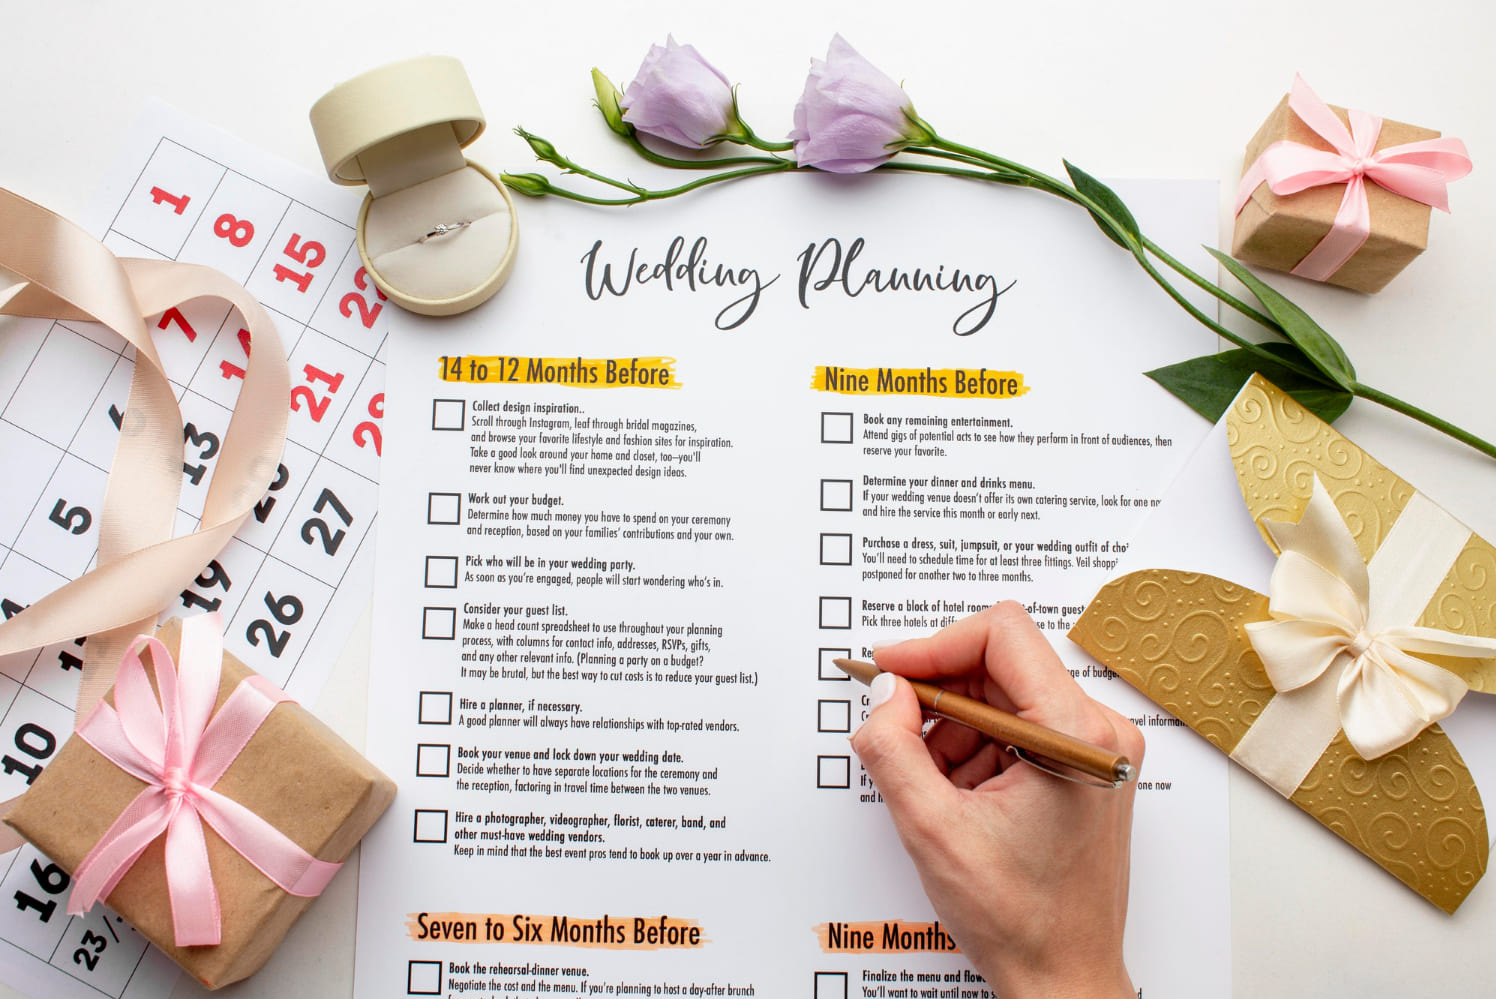 Wedding Planning
14 to 12 Months Before
Collect design inspiration..
Scroll through Instagram, leaf through bridal magazines,
and browse your favorite lifestyle and fashion sites for inspiration.
Take a good look around your home and closet, too—you'll
never know where you'll find unexpected design ideas.
Work out your budget.
Determine how much money you have to spend on your ceremony
and reception, based on your families' contributions and your own.
Pick who will be in your wedding party.
As soon as you're engaged, people will start wondering who's in.
Consider your guest list.
Make a head count spreadsheet to use throughout your planning
process, with columns for contact info, addresses, RSVPs, gifts,
and any other relevant info. (Planning a party on a budget?
It may be brutal, but the best way to cut costs is to reduce your guest list.)
Hire a planner, if necessary.
A good planner will always have relationships with top-rated vendors.
Book your venue and lock down your wedding date.
Decide whether to have separate locations for the ceremony and
the reception, factoring in travel time between the two venues.
Hire a photographer, videographer, florist, caterer, band, and
other must-have wedding vendors.
Keep in mind that the best event pros tend to book up over a year in advance.
Seven to Six Months Before
Book the rehearsal-dinner venue.
Negotiate the cost and the menu. If you're planning to host a day-after brunch
Nine Months Before
Book any remaining entertainment.
Attend gigs of potential acts to see how they perform in front of audiences, then
reserve your favorite.
Determine your dinner and drinks menu.
If your wedding venue doesn't offer its own catering service, look for one
and hire the service this month or early next.
Purchase a dress, suit, jumpsuit, or your wedding outfit of
You'll need to schedule time for at least three fittings. Veil
postponed for another two to three months.
Reserve a block of hotel
Pick three hotels at
to the
of
If
one now
and
Nine Months
Finalize the menu and
You'll want to wait until now to
1
8
15
7
21
6
13
5
27
19
26
10
16
23